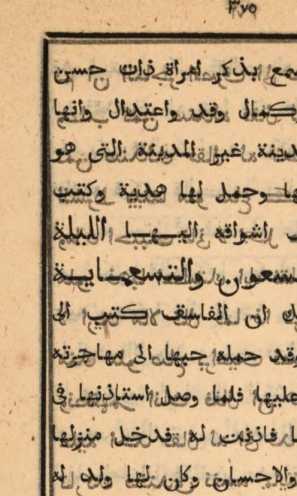 ٣٧٥
سمع بذكر امراة ذات حسن
وكمال وقد واعتدال وانها
مدينة غير المدينة التى هو
بها وحمل لها هدية وكتب
اشواقه اليها الليلة
تسعون والتسعماية
ان الفاسق كتب الى
وقد حمله حبها الى مهاجرته
عليها فلما وصل استاذنها فى
فاذنت له فدخل منزلها
والاحسان وكان لها ولد له